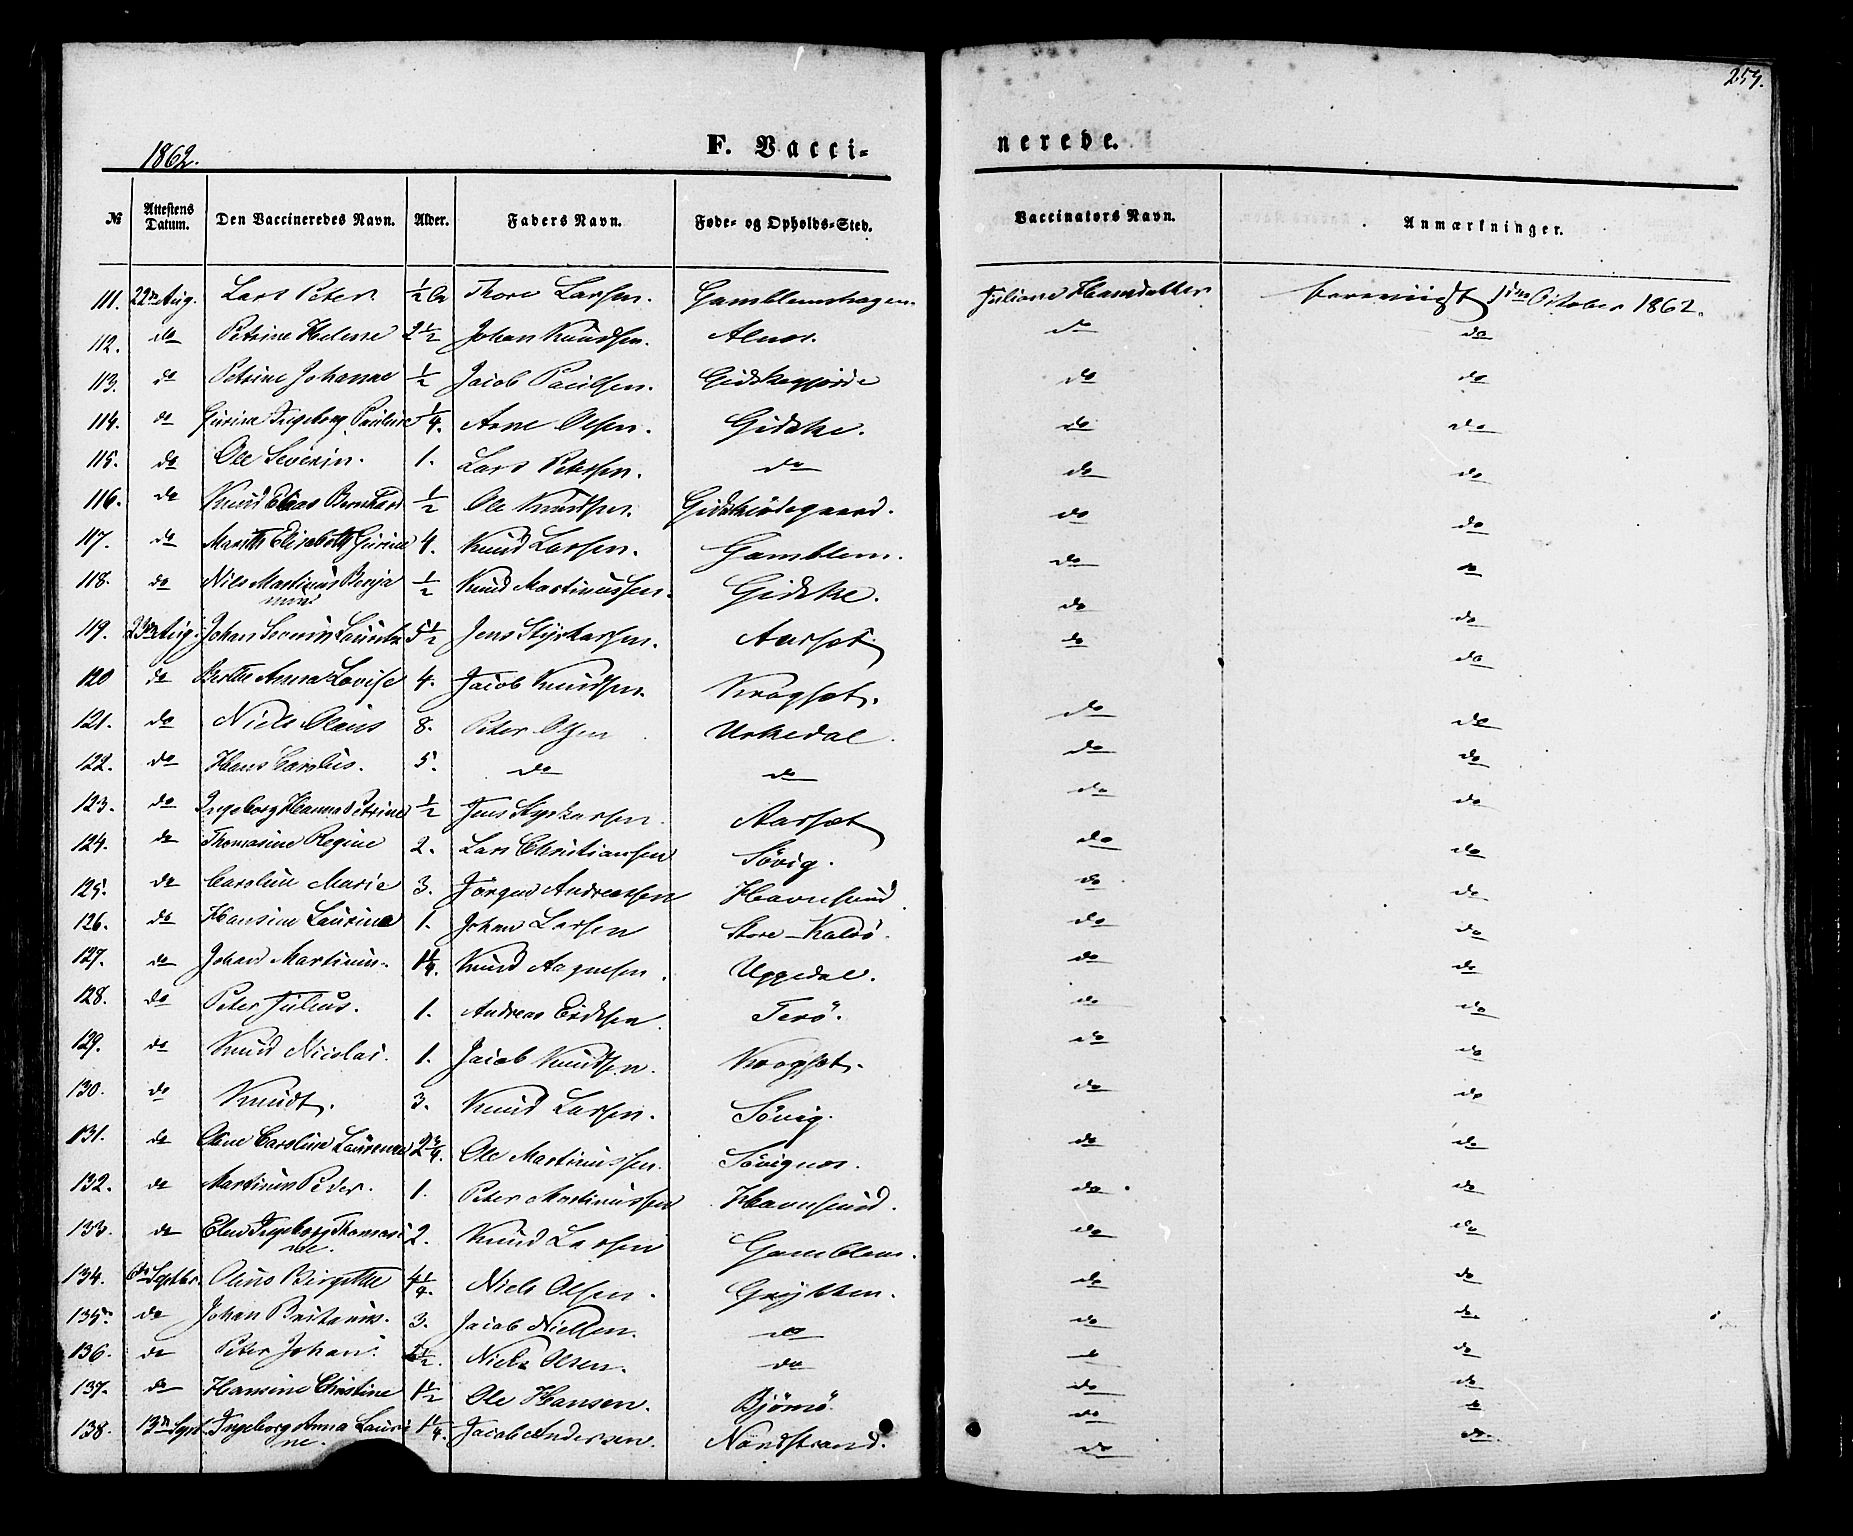 257.
1862. F. Vacci- nerede.
№ Attestens Datum. Den Vaccineredes Navn. Alder. Faders Navn. Føde- og Opholds-Sted. Vaccinators Navn. Anmærkninger.
111. 22de Aug. Lars Peter 1/2 Thore Larsen. Gamblemshagen. Juliane Hansdatter October 1862.
112. do Petrine Helene 2 1/2 Johan Knudsen. Alnes. do do
113. do Petrine Johanne 1/2 Jacob Paulsen. Gidskegjerde do do
114. do Gurine Ingeborg Pauline 1/4. Arne Olsen. Gidske. do do
115. do Ole Severin. 1. Lars Petersen. do do do
116. do Knud Elias Bernhard 1/2 Ole Knudsen. Gidskeødegaard. do do
117. do Marith Elisabeth Gurine 4. Knud Larsen. Gamblem. do do
118. do Nils Martinus Benjamin 1/2 Knud Martinussen. Gidske. do do
119. 23de Aug. Johan Severin 5 1/2 Jens Styrkarsen. Aarset do do
120 do Berthe Anna Lovise 4. Jacob Knudsen. Krogset. do do
121. do Niels Olaus 8. Peter Olsen Urkedal. do do
122. do Hans Carolus. 5. do do do do
123. do Ingeborg Hanna Petrine 1/2 Jens Styrkarsen. Aarset do do
124. do Thomasine Regine 2. Lars Christiansen Søvig. do do
125. do Caroline Marie 3. Jørgen Andreassen Havnsund. do do
126. do Hansine Laurine 1. Johan Larsen Store-Kalsø. do do
127. do Johan Martinus. 1 1/4. Knud Aagesen. Uggedal. do do
128. do Peter Julius. 1. Andreas Eriksen. Terö. do do
129. do Knud Nicolai. 1. Jacob Knudsen. Krogset. do do
130. do Knudt. 3. Knud Larsen. Søvig. do do
131. do Oline Caroline Laurense 2 3/4. Ole Martinussen. Søvignes. do do
132. do Martinus Peder. 1. Peter Martinussen Havnsund. do do
133. do Elen Ingeborg Thomasine. 2. Knud Larsen Gamblem. do do
134. 6te Septbr. Oline Birgitte 4 1/4. Niels Olsen. Grytten. do do
135. do Johan 3. Jacob Nielsen. do do do
136. do Peter Johan. 2 1/2. Niels Olsen. do do do
137. do Hansine Christine 1 1/2 Ole Hansen. Bjørnö. do do
138. 13de Sept. Ingeborg Anna Laurine. 1 1/4. Jacob Andersen. Nordstrand. do do